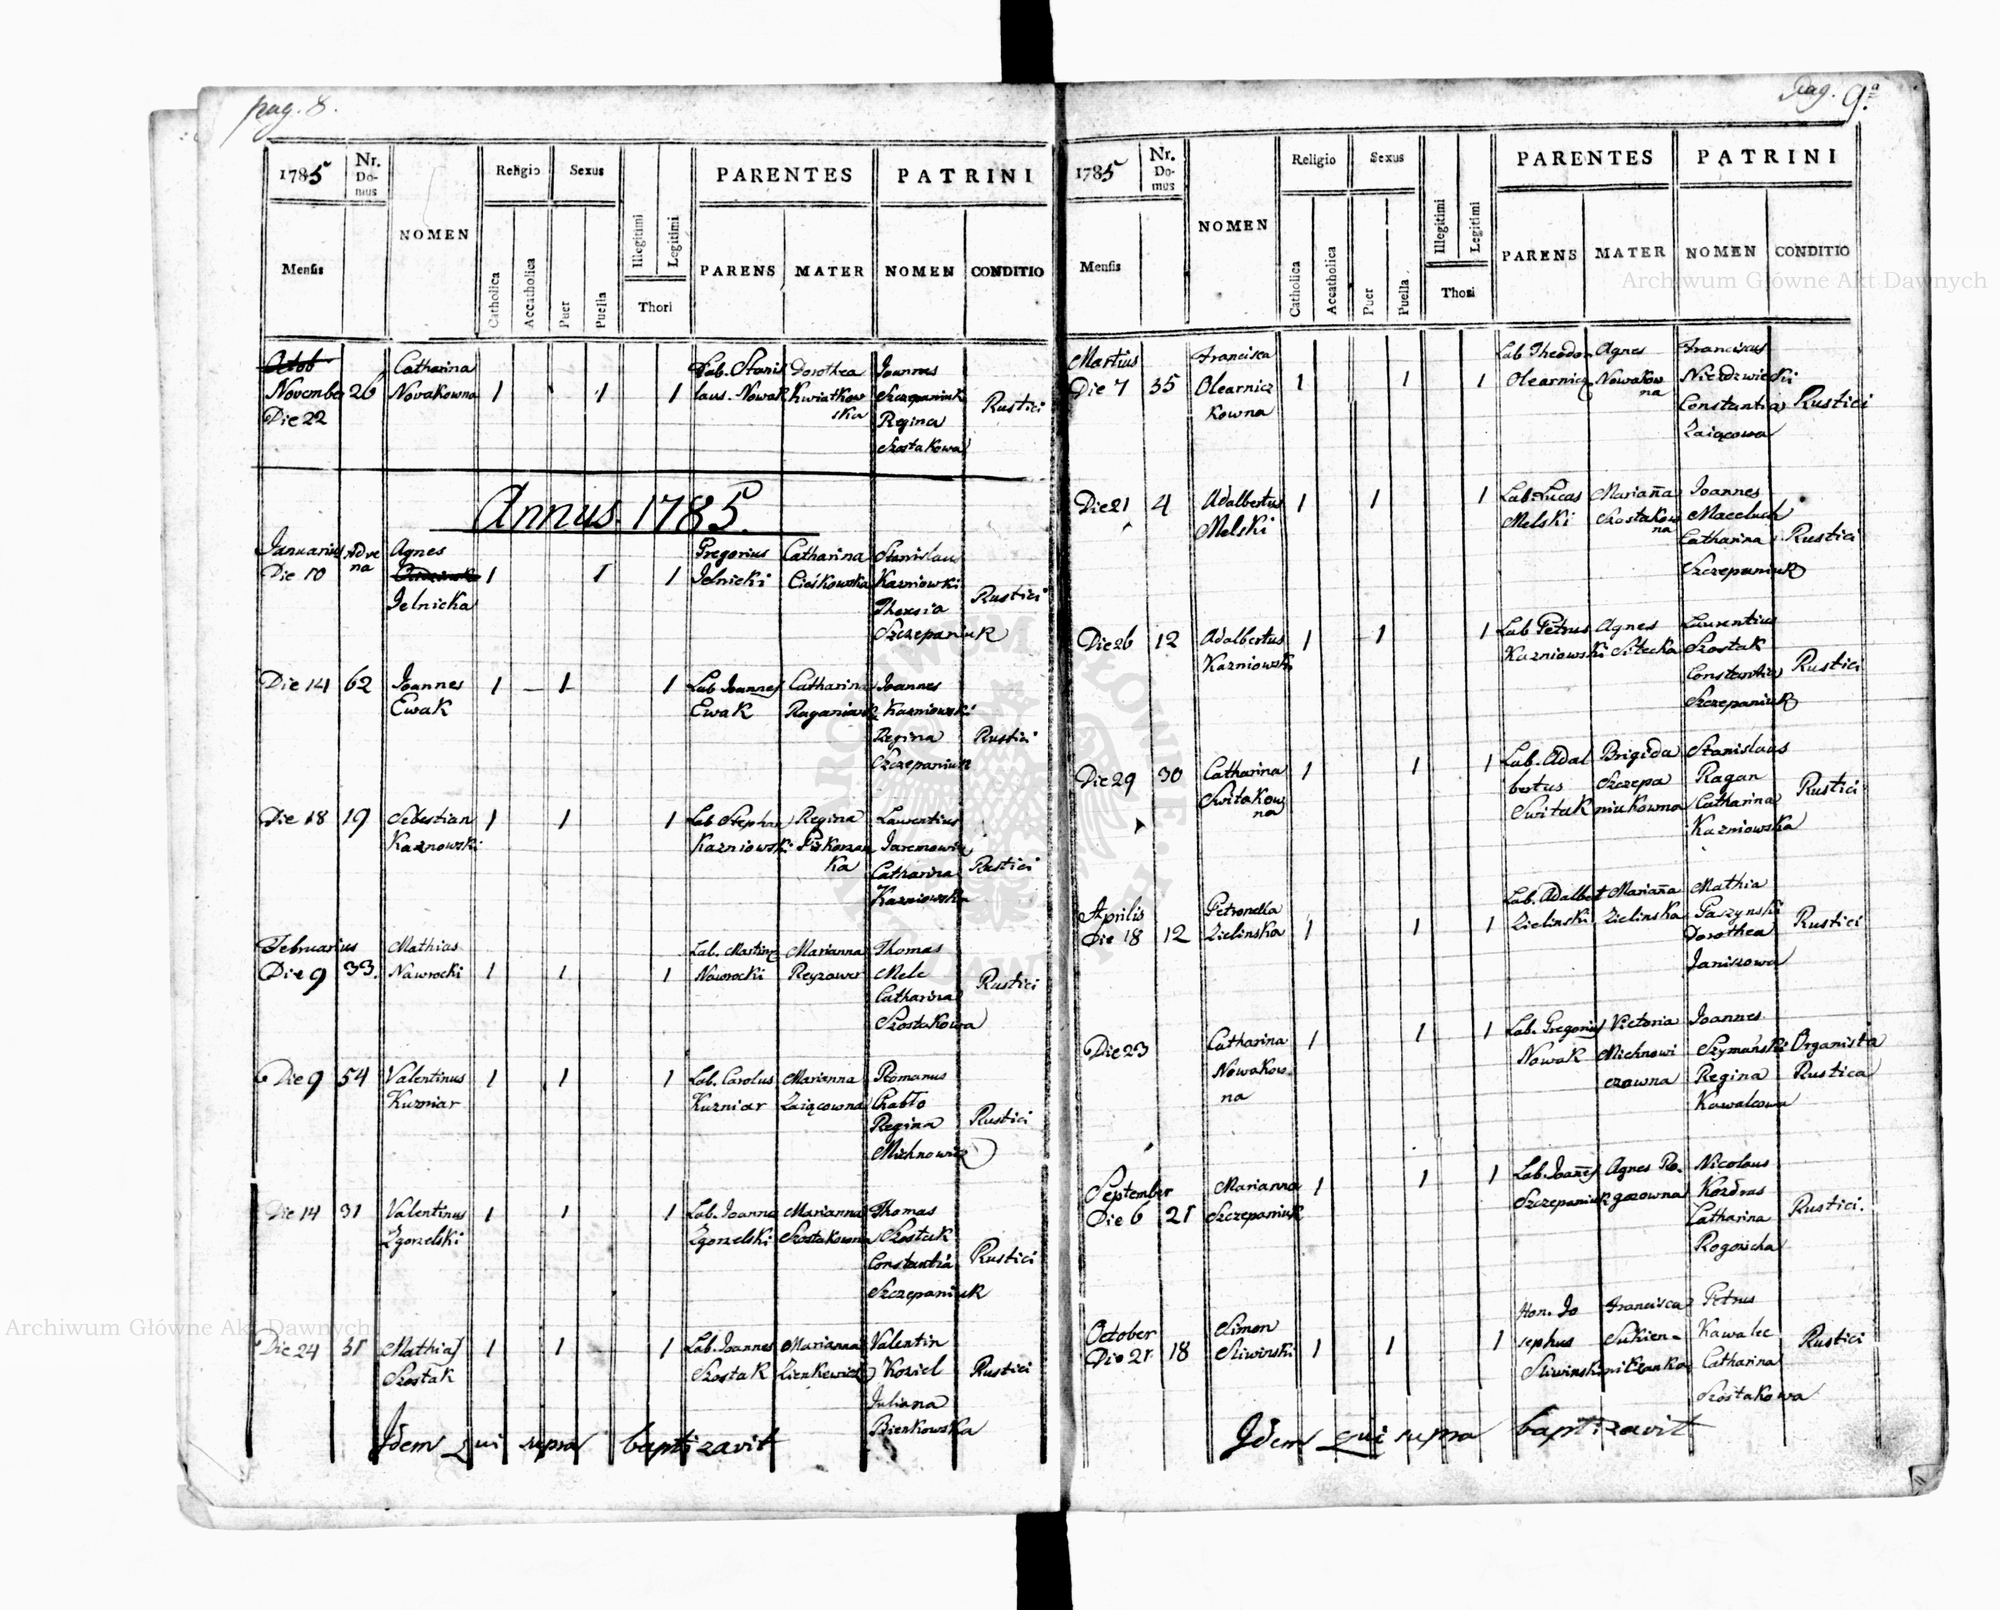 pag. 8.
1785
Nr. Domus
NOMEN
Religio
Sexus
PARENTES
PATRINI
Mensis
Catholica
Accatholica
Puer
Puella
Illegitimi
Legitimi
Thori
PARENS
MATER
NOMEN
CONDITIO
Octob
November 26 Catharina Novakowna 1 1 1 Lab. Stanislaus. Nowak Dorothea Kwiatkowska Joannes Szczepaniuk Regina Szostakowa Rustici
Die 22
Annus. 1785.
Januarius Advena Agnes
Die 10 Jelnicka 1 1 1 Gregorius Jelnicki Catharina Cieśkowska Stanislau Kazniowski Theresia Szczepaniuk Rustici
Die 14 62 Joannes Ewak 1 1 1 Lab Joannes Ewak Catharina Joannes Kazniowski Regina Szczepaniuk Rustici
Die 18 19 Sebestian Kaznowski 1 1 1 Lab Stephan Kazniowski Regina Piskorzanka Laurentius Jaremowicz Catharina Kazniowska Rustici
Februarius
Die 9 33. Mathias Nawrocki 1 1 1 Lab. Martinus Nawrocki Marianna Thomas Mele Catharina Szostakowa Rustici
Die 9 54 Valentinus Kuzniar 1 1 1 Lab. Carolus Kuzniar Marianna Zaiącowna Romanus Chabło Regina Michnowicz Rustici
Die 14 31 Valentinus Zgorzelski 1 1 1 Lab. Joannes Zgorzelski Marianna Szostakowna Thomas Szostak Constantia Szczepaniuk Rustici
Die 24 51 Mathias Szostak 1 1 1 Lab. Joannes Szostak Marianna Zienkewicz Valentin Koziel Juliana Bienkowska Rustici
Idem qui supra baptizavit
pag. 9.a
1785
Nr. Domus
NOMEN
Religio
Sexus
PARENTES
PATRINI
Mensis
Catholica
Accatholica
Puer
Puella
Illegitimi
Legitimi
Thori
PARENS
MATER
NOMEN
CONDITIO
Martius
Die 7 35 Francisca Olearniczkowna 1 1 1 Lab Theodor Olearnicz Agnes Nowakowna Franciscus Niedzwiecki Constantia Zaiącowa Rustici
Die 21 4 Adalbertus Melski 1 1 1 Lab Lucas Melski Mariana Szostakowna Joannes Maceluch Catharina Szczepaniuk Rustici
Die 26 12 Adalbertus Kazniowski 1 1 1 Lab Petrus Kazniowski Agnes Sitecka Laurentius Szostak Constantia Szczepaniuk Rustici
Die 29 30 Catharina Switakowna 1 1 1 Lab. Adalbertus Switak Brigida Szczepaniukowna Stanislaus Ragan Catharina Kazniowska Rustici
Aprilis
Die 18 12 Petronella Zielinska 1 1 1 Lab. Adalbert Zielinski Mariana Zielinska Mathia Paszynski Dorothea Janiszowa Rustici
Die 23 Catharina Nowakowna 1 1 1 Lab. Gregorius Nowak Victoria Michnowiczowna Joannes Szymański Organista Regina Kawalcowa Rustica
September
Die 6 21 Marianna Szczepaniuk 1 1 1 Lab. Joanes Szczepaniuk Agnes Rogozowna Nicolaus Kozdras Catharina Rogozicha Rustici.
October
Die 21 18 Simon Sliwinski 1 1 1 Hon. Josephus Sliwinski Francisca Sukiennikzanka Petrus Kawalec Catharina Szostakowa Rustici
Idem qui supra baptizavit
Archiwum Główne Akt Dawnych
Archiwum Główne Akt Dawnych
ARCHIWUM GŁÓWNE AKT DAWNYCH